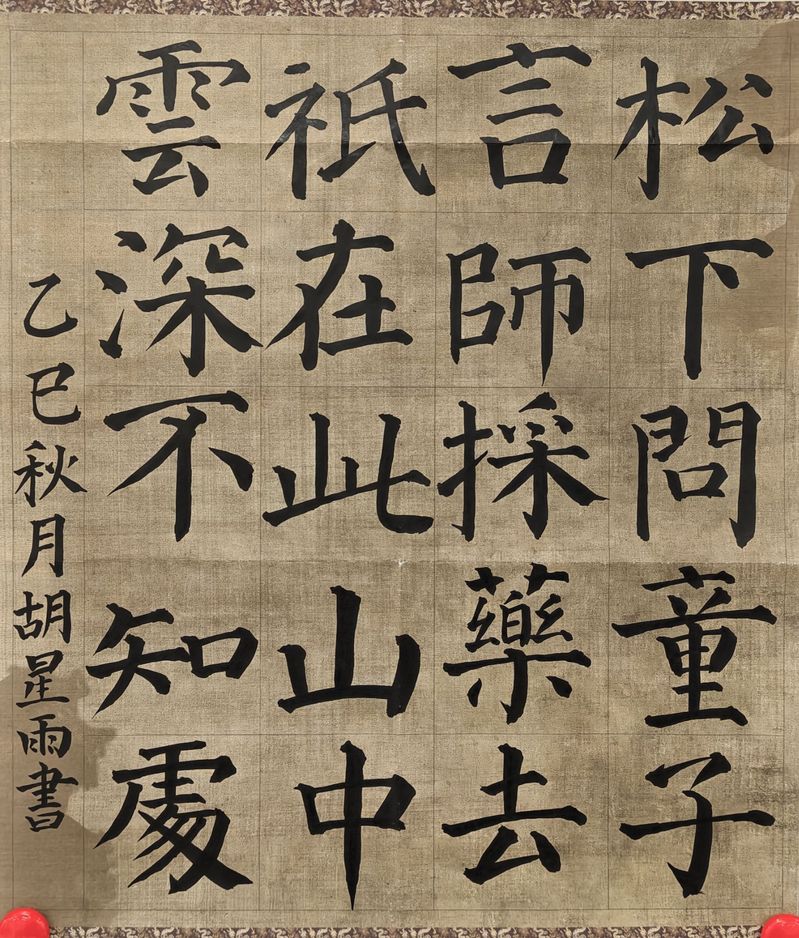 松下問童子
言師採藥去
祇在此山中
雲深不知處
乙巳秋月胡星雨書